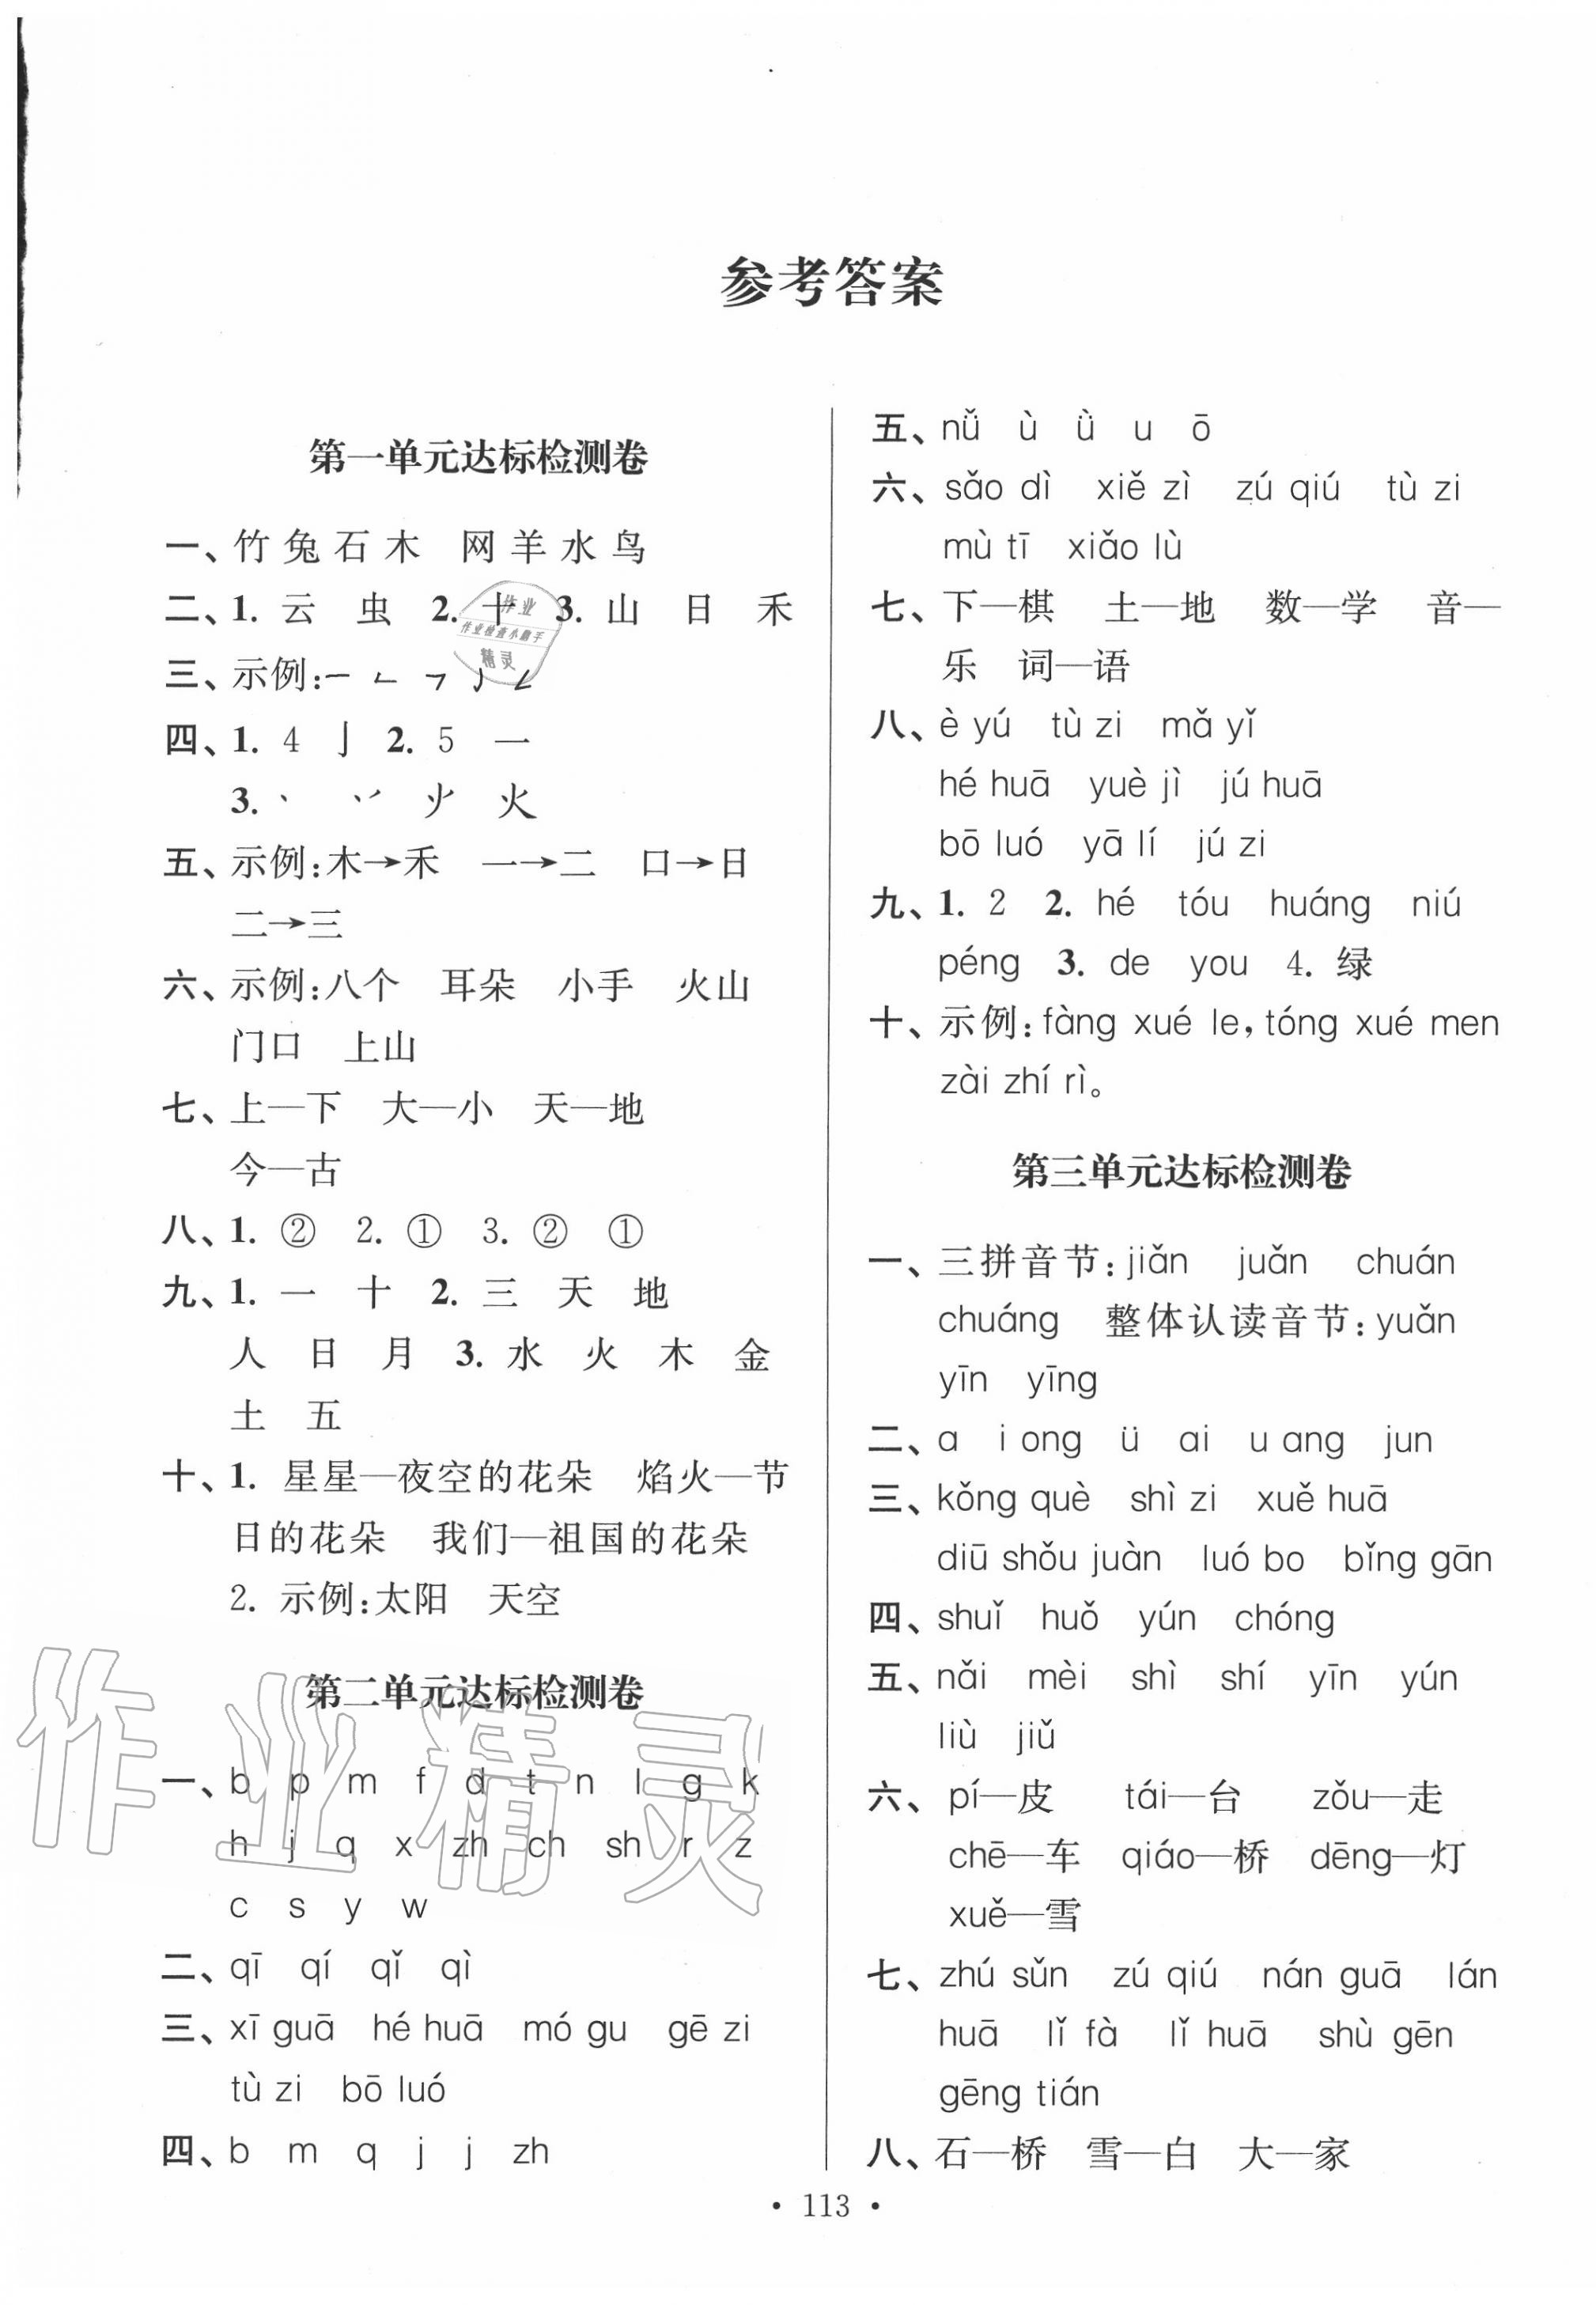 参考答案
第一单元达标检测卷
一、竹 兔 石 木 网 羊 水 鸟
二、1. 云 虫 2. 十 3. 山 日 禾
三、示例:㇐ 𠃊 ㇇ 亅 ㇜
四、1. 4 亅 2. 5 一
3. 丶 丷 火 火
五、示例:木→禾 一→二 口→日
二→三
六、示例:八个 耳朵 小手 火山
门口 上山
七、上—下 大—小 天—地
今—古
八、1. ② 2. ① 3. ② ①
九、1. 一 十 2. 三 天 地
人 日 月 3. 水 火 木 金
土 五
十、1. 星星—夜空的花朵 焰火—节
日的花朵 我们—祖国的花朵
2. 示例:太阳 天空
第二单元达标检测卷
一、b p m f d t n l g k
h j q x zh ch sh r z
c s y w
二、qī qí qǐ qì
三、xī guā hé huā mó gu gē zi
tù zi bō luó
四、b m q j j zh
五、nǚ ù ǜ u ō
六、sǎo dì xiě zì zú qiú tù zi
mù tī xiǎo lù
七、下—棋 土—地 数—学 音—
乐 词—语
八、è yú tù zi mǎ yǐ
hé huā yuè jì jú huā
bō luó yā lí jú zi
九、1. 2 2. hé tóu huáng niú
péng 3. de you 4. 绿
十、示例:fàng xué le,tóng xué men
zài zhí rì。
第三单元达标检测卷
一、三拼音节:jiǎn juǎn chuán
chuáng 整体认读音节:yuǎn
yīn yīng
二、a i ong ü ai u ang jun
三、kǒng què shì zi xuě huā
diū shǒu juàn luó bo bǐng gān
四、shuǐ huǒ yún chóng
五、nǎi mèi shì shí yīn yún
liù jiǔ
六、pí—皮 tái—台 zǒu—走
chē—车 qiáo—桥 dēng—灯
xuě—雪
七、zhú sǔn zú qiú nán guā lán
huā lǐ fà lǐ huā shù gēn
gēng tián
八、石—桥 雪—白 大—家
• 113 •
作业
作业检查小助手
精灵
作业精灵